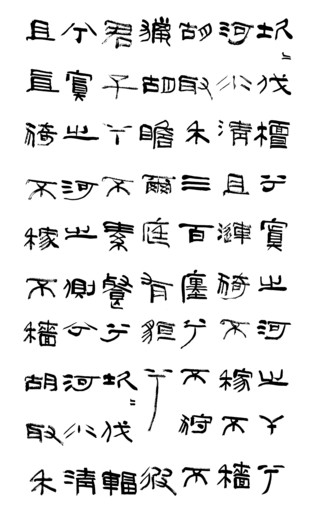 坎〻伐檀兮寘之河之干兮
河水清且漣猗不稼不穡
胡取禾三百廛兮不狩不
獵胡瞻爾庭有貆兮彼
君子兮不素餐兮坎〻伐輻
兮寘之河之側兮河水清
且直猗不稼不穡胡取禾